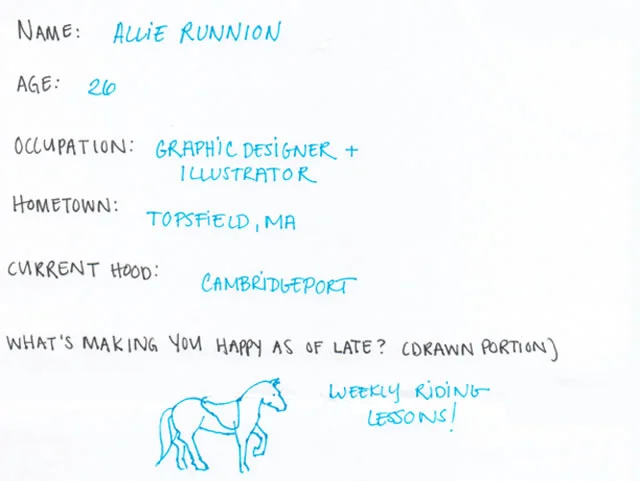 NAME: ALLiE RUNNION
AGE: 26
OCCUPATION: GRAPHIC DESIGNER +
ILLUSTRATOR
HOMETOWN: TOPSFiELD, MA
CURRENT HOOD: CAMBRiDGEPORT
WHAT'S MAKING YOU HAPPY AS OF LATE? (DRAWN PORTION)
WEEKLY RiDING
LESSONS!